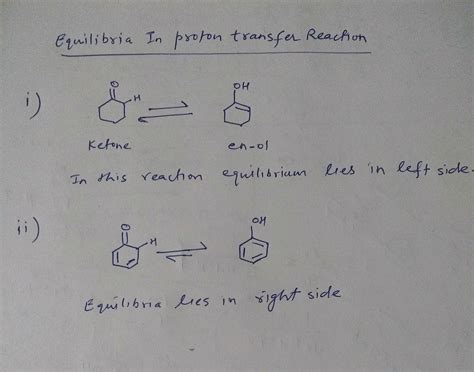 Equilibria In proton transfer Reaction
i)
O
H
OH
Ketone
en-ol
In this reaction equilibrium lies in left side.
ii)
O
H
OH
Equilibria lies in right side